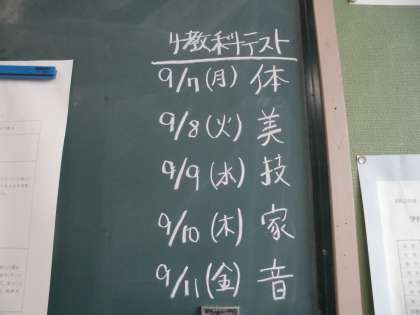 4教科テスト
9/7(月) 体
9/8(火) 美
9/9(水) 技
9/10(木) 家
9/11(金) 音